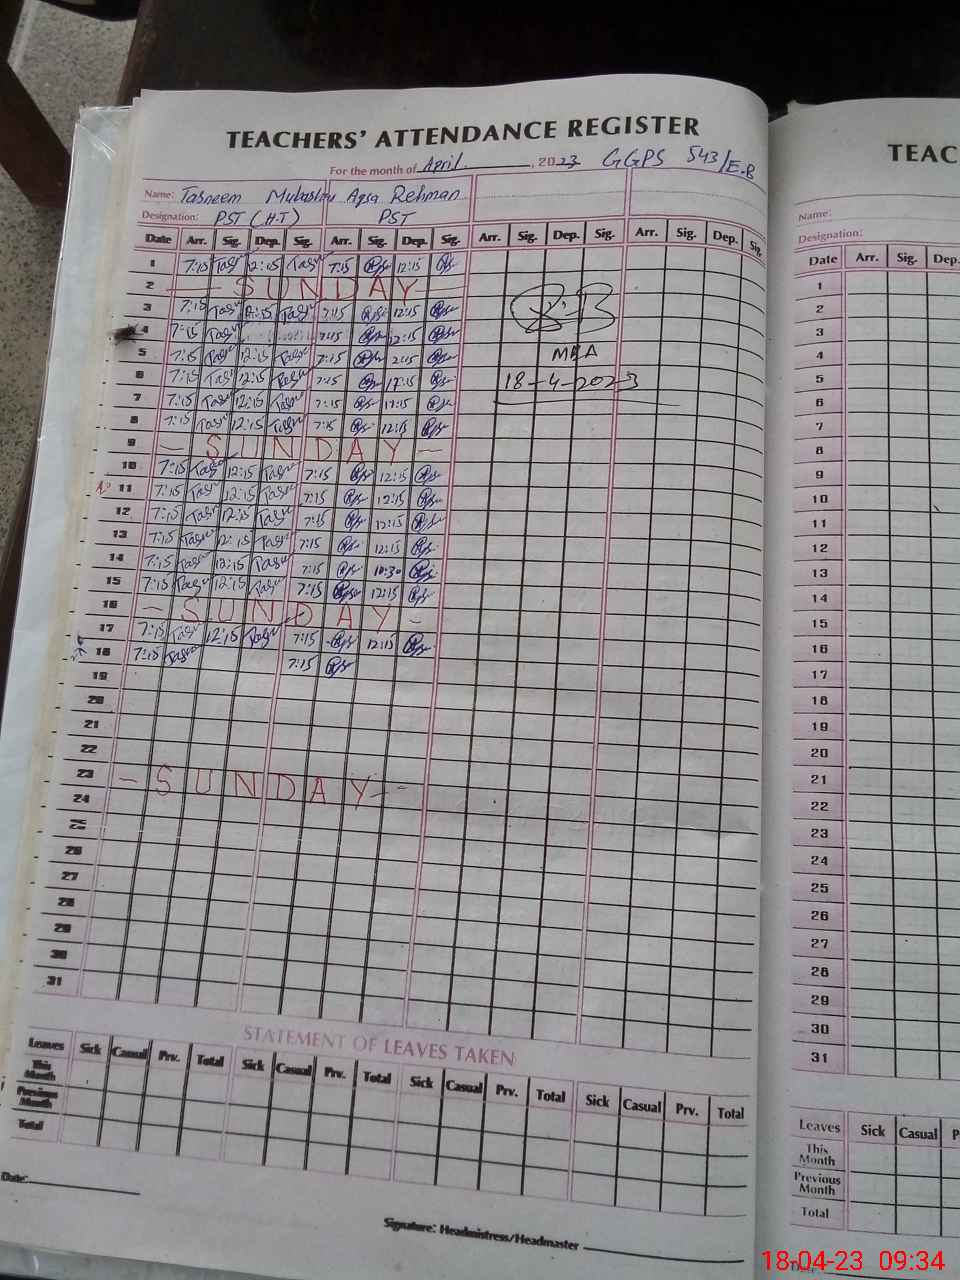 TEACHERS' ATTENDANCE REGISTER
For the month of April, 2023 GGPS 543/E.B
Name: Tasneem Aqsa Rehman
Designation: PST (H.T) PST
Date Arr. Sig. Dep. Sig. Arr. Sig. Dep. Sig. Arr. Sig. Dep. Sig. Arr. Sig. Dep. Sig.
1 7:15 Tasn 12:15 Tasn 7:15 12:15
2 — SUNDAY —
3 7:15 Tasn 12:15 Tasn 7:15 12:15
4 7:15 Tasn 7:15 12:15
5 7:15 Tasn 12:15 Tasn 7:15 MEA
6 7:15 Tasn 12:15 Tasn 7:15 12:15 18-4-2023
7 7:15 Tasn 12:15 Tasn 7:15 12:15
8 7:15 Tasn 12:15 Tasn 7:15 12:15
9 — SUNDAY —
10 7:15 Tasn 12:15 Tasn 7:15 12:15
11 7:15 Tasn 12:15 Tasn 7:15 12:15
12 7:15 Tasn 12:15 Tasn 7:15 12:15
13 7:15 Tasn 12:15 Tasn 7:15 12:15
14 7:15 Tasn 12:15 Tasn 7:15
15 7:15 Tasn 12:15 Tasn 7:15 12:15
16 — SUNDAY —
17 7:15 Tasn 12:15 Tasn 7:15 12:15
18 7:15 Tasn 7:15
19
20
21
22
23 — SUNDAY —
24
25
26
27
28
29
30
31
STATEMENT OF LEAVES TAKEN
Leaves Sick Casual Prv. Total Sick Casual Prv. Total Sick Casual Prv. Total Sick Casual Prv. Total
This Month
Previous Month
Total
Date:
Signature: Headmistress/Headmaster
TEAC
Name:
Designation:
Date Arr. Sig. Dep.
1
2
3
4
5
6
7
8
9
10
11
12
13
14
15
16
17
18
19
20
21
22
23
24
25
26
27
28
29
30
31
Leaves Sick Casual P
This Month
Previous Month
Total
18-04-23 09:34